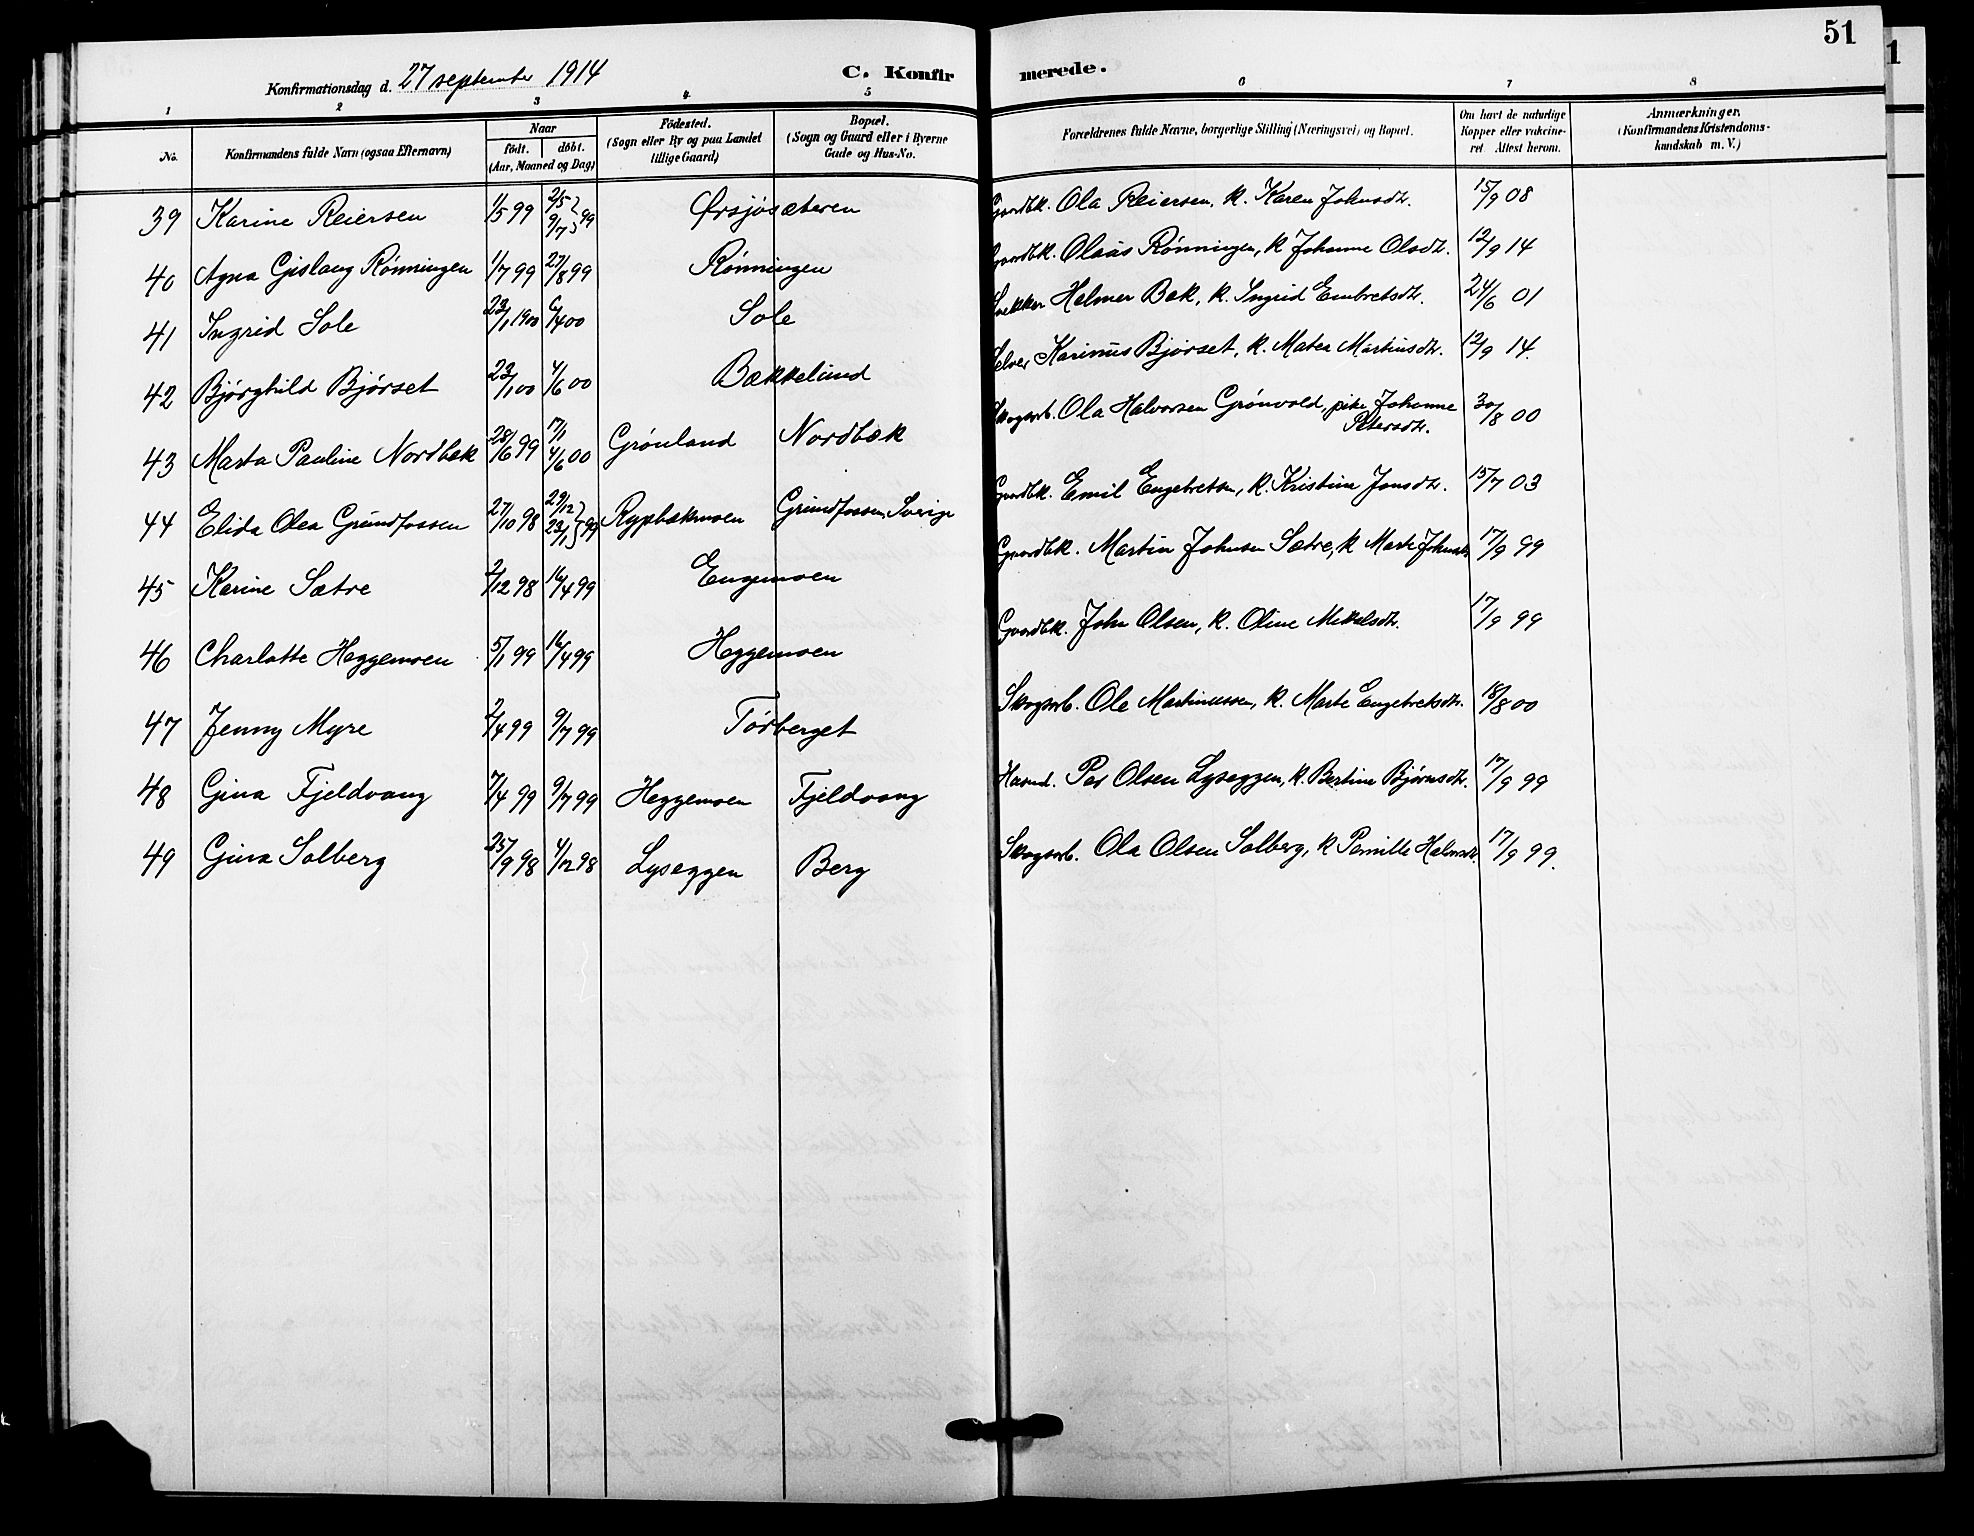 51
1
Konfirmationsdag d. 27 september 1914
C. Konfir merede.
1 2 3 4 5 6 7 8
No.
Konfirmandens fulde Navn (ogsaa Efternavn)
Naar
født. døbt.
(Aar, Maaned og Dag)
Fødested.
(Sogn eller By og paa Landet
tillige Gaard)
Bopæl.
(Sogn og Gaard eller i Byerne
Gade og Hus-No.
Forældrenes fulde Navne, borgerlige Stilling (Næringsvei) og Bopæl.
Om havt de naturlige
Kopper eller vakcine-
ret. Attest herom.
Anmærkninger.
(Konfirmandens Kristendoms-
kundskab m. V.)
39 Karine Reiersen 1/5 99 2/5 9/7 } 99 Ørsjøsæteren Gaardbk. Ola Reiersen, k. Karen Johnsdtr. 15/9 08
40 Agna Gislaug Rønningen 1/7 99 27/8 99 Rønningen Gaardbk. Olaus Rønningen, k Johanne Olsdtr. 12/9 14
41 Ingrid Sole 23/1 1900 6/4 00 Sole Halmer Bak, k. Ingrid Embretsdtr. 24/6 01
42 Bjørghild Bjørset 23/1 00 4/6 00 Bækkelund Selvei Karinus Bjørset, k. Matea Martinsdtr. 12/9 14.
43 Marta Pauline Nordbæk 28/6 99 17/1 4/6 00 Grønland Nordbæk Skogsarb. Ola Halvorsen Grønvold, pike Johanne Petersdtr. 30/8 00
44 Elida Olea Grundfossen 27/10 98 29/12 23/1 } 99 Rypbækmoen Grundfossen, Sverige Gaardbk. Emil Engebretsen, k. Kristine Jonsdtr. 15/7 03
45 Karine Sætre 2/12 98 16/4 99 Engemoen Gaardbk. Martin Johnsen Sætre, k Marte Johnsdtr. 17/9 99
46 Charlotte Heggemoen 5/1 99 16/4 99 Heggemoen Gaardbk. John Olsen, k. Oline Mikkelsdtr. 17/9 99
47 Jenny Myre 2/4 99 9/7 99 Tørberget Skogsarb. Ole Martinussen, k. Marte Engebretsdtr. 18/8 00
48 Gina Fjeldvang 7/4 99 9/7 99 Heggemoen Fjeldvang Husmd. Per Olsen Lyseggen, k. Bertine Bjørnsdtr. 17/9 99
49 Gina Solberg 25/9 98 4/12 98 Lyseggen Berg Skogsarb. Ola Olsen Solberg, k Pernille Halvorsdtr. 17/9 99.